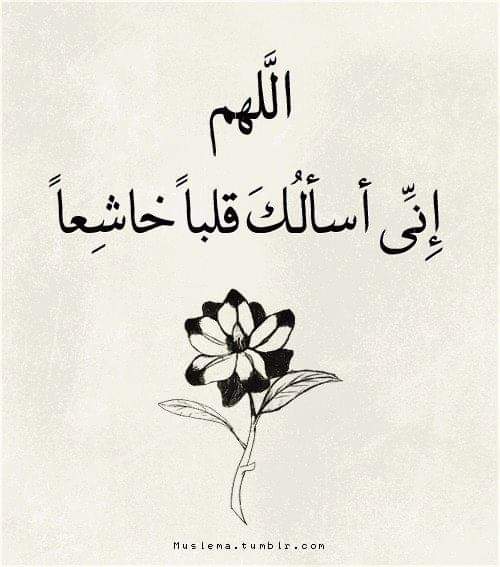 الَّلهم
إِنِّى أسألُكَ قلباً خاشِعاً
Muslema.tumblr.com